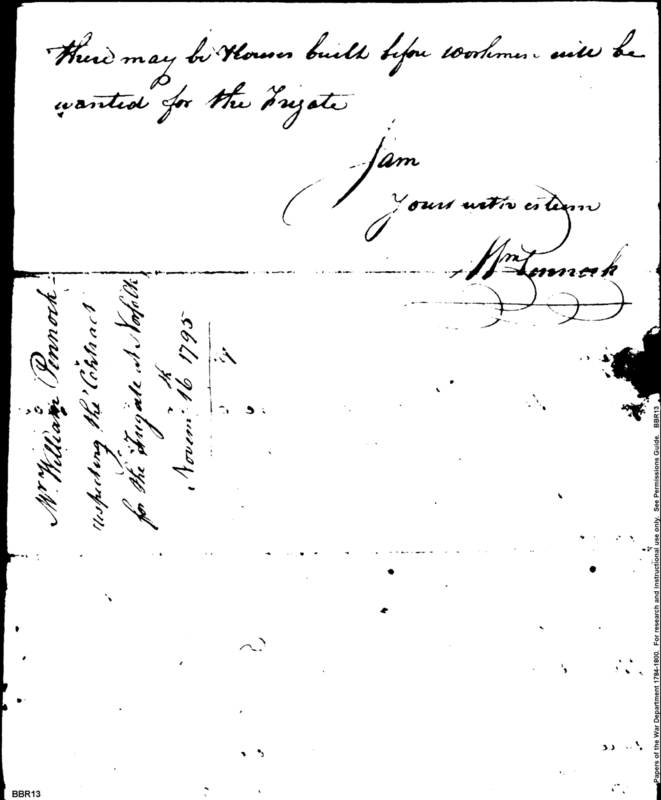 there may be Houses built before workmen will be
wanted for the Frigate
I am
Yours with esteem
Wm Pennock
Mr. William Pennock
respecting the Contract
for the Frigate at Norfolk
Novemr. 16th 1795
Papers of the War Department 1784-1800. For research and instructional use only. See Permissions Guide. BBR13
BBR13